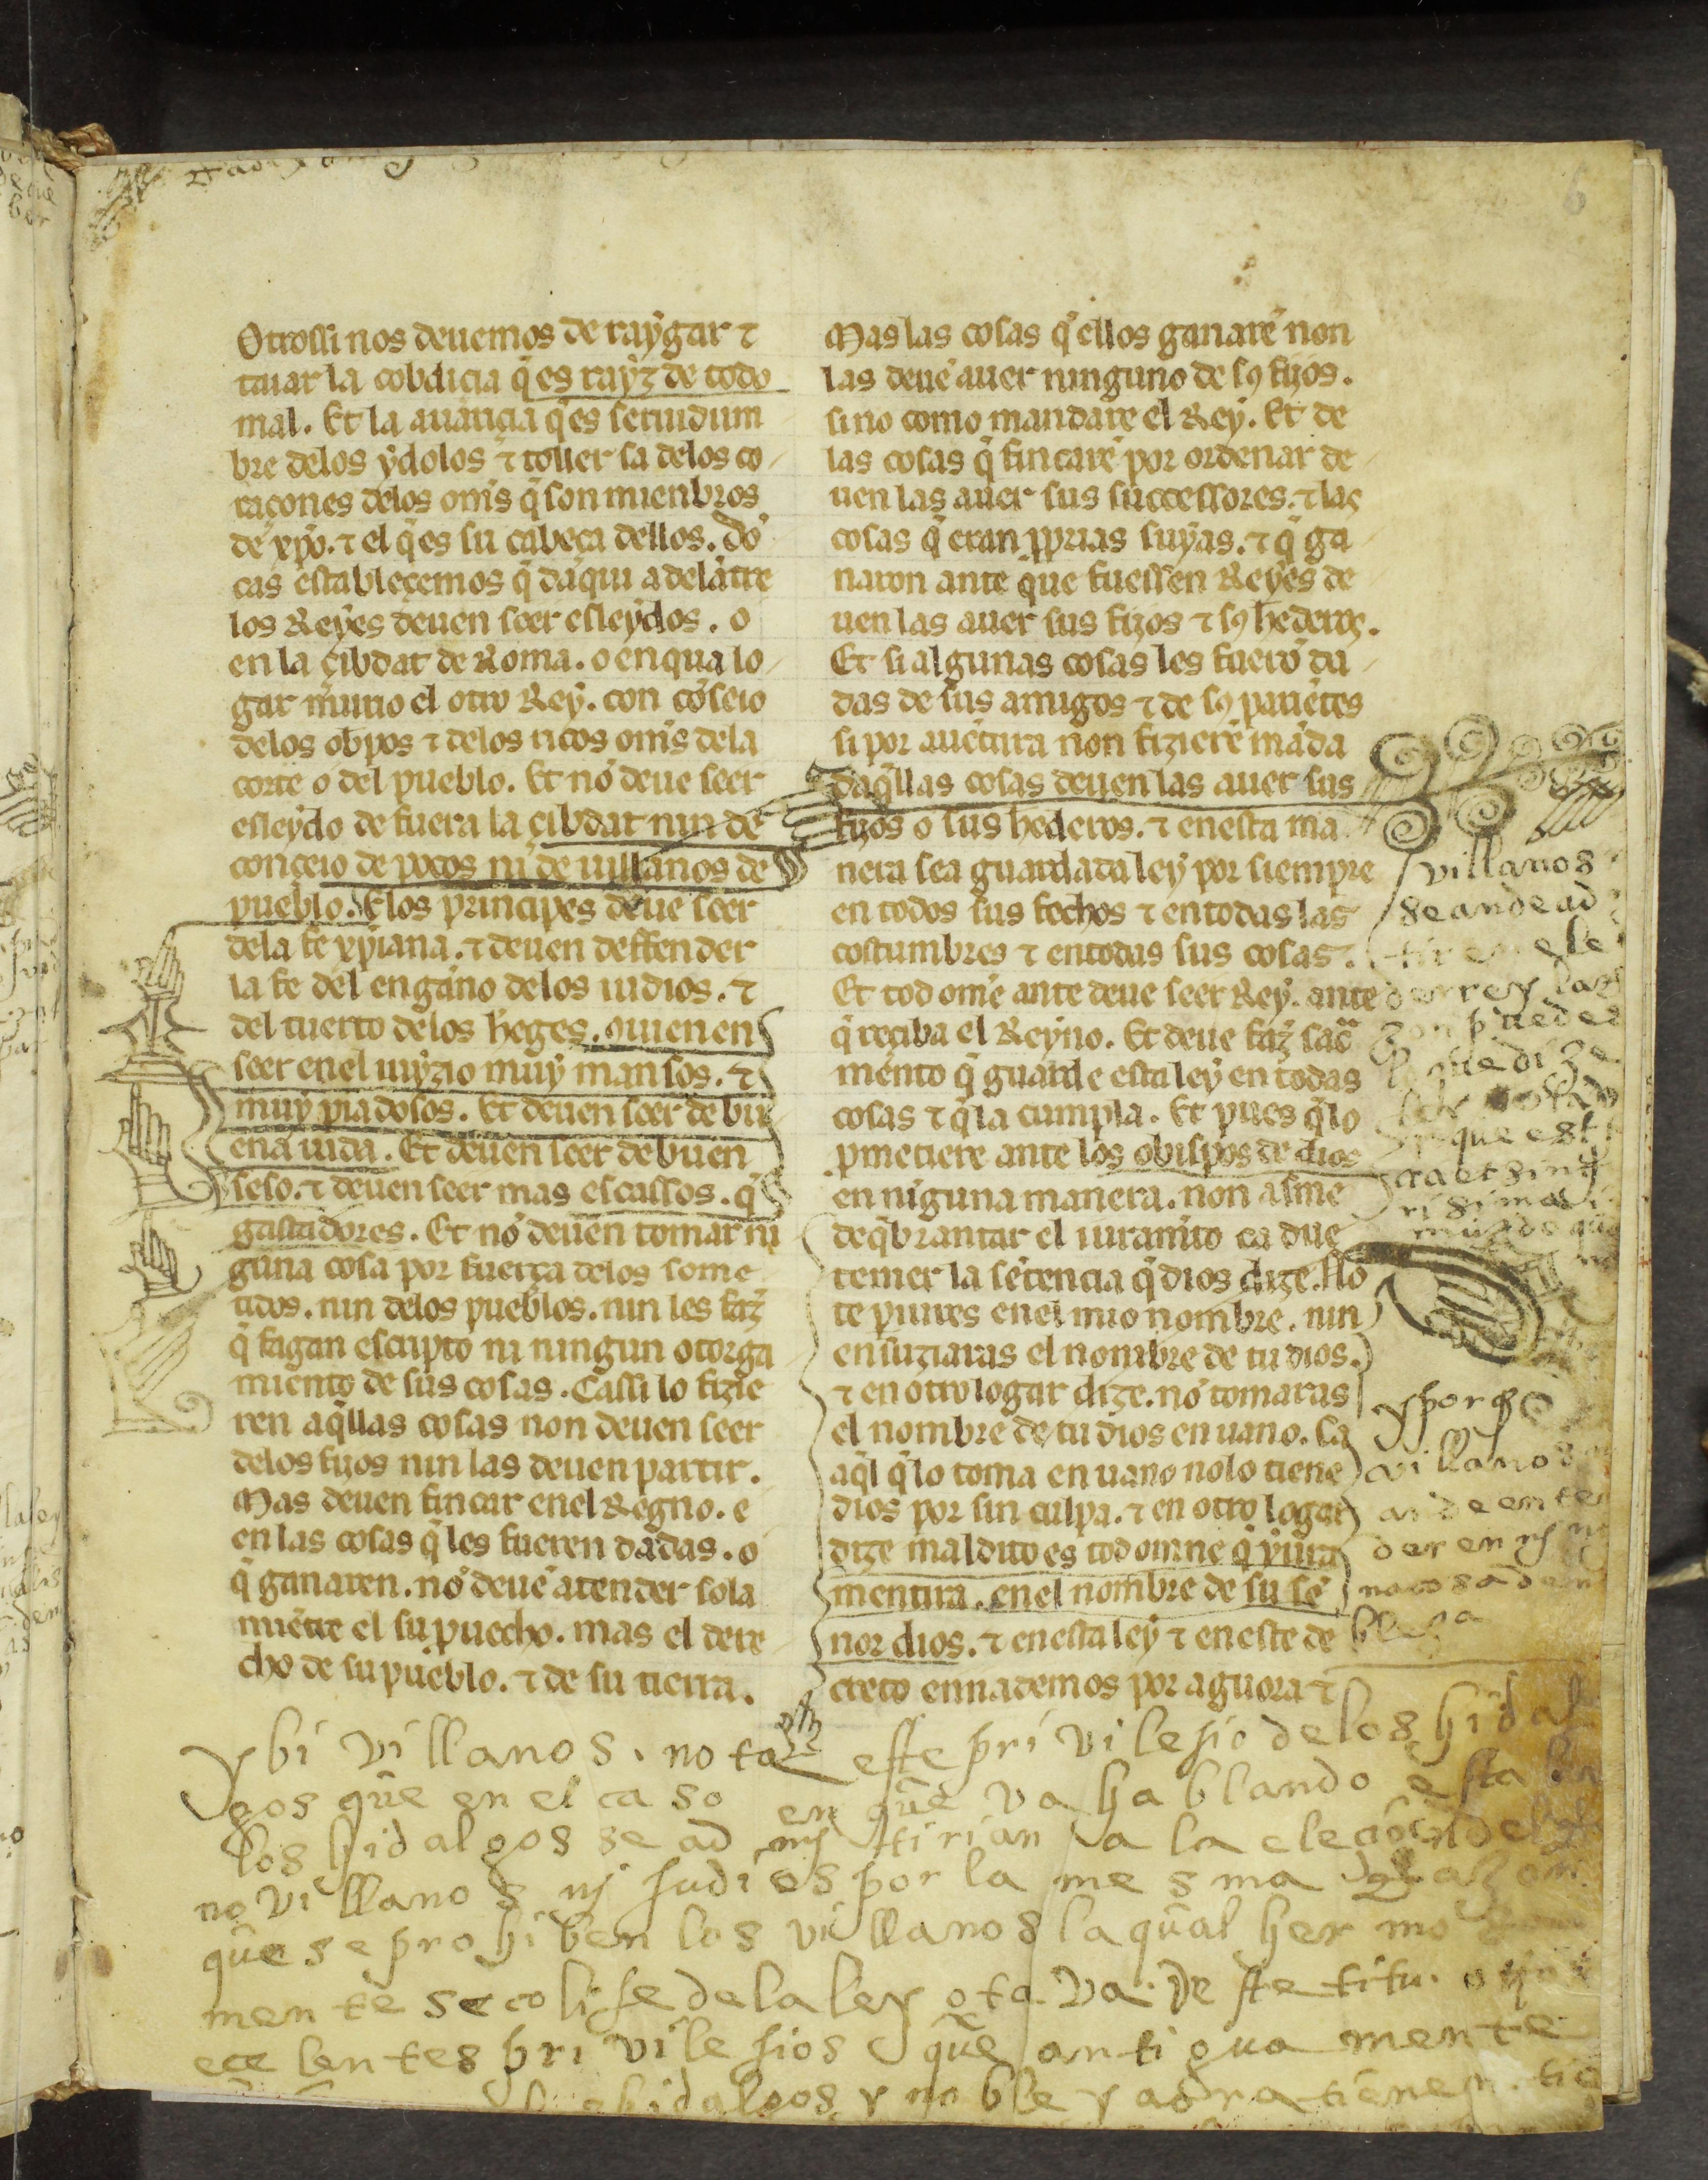 6
Otrossi nos deuemos de raygar ⁊
tirar la cobdicia q̃ es rayz de todo
mal. Et la auaricia q̃ es seruidum
bre delos ydolos ⁊ toller la delos co
raçones delos om̃s q̃ son mienbros
de xp̃o. ⁊ el q̃ es su cabeça dellos. dõ
cas estableçemos q̃ daqui adelãtre
los Reyes deuen seer esleydos. o
en la çibdat de Roma. o en qua lo
gar murio el otro Rey. con cõseio
delos obpos ⁊ delos ricos om̃s dela
corte o del pueblo. Et nõ deue seer
esleydo de fuera la çibdat nin de
conçeio de pocos nĩ de uillanos de
pueblo. E los principes deuẽ seer
dela fe xp̃iana. ⁊ deuen deffender
la fe del engãno delos iudios. ⁊
del tuerto delos hereges. ⁊ uienen
seer en el iuyzio muy mansos. ⁊
muy piadosos. Et deuen seer de bu
ena uida. Et deuen seer de buen
seso. ⁊ deuen seer mas escassos. q̃
gastadores. Et nõ deuen tomar nĩ
guna cosa por fuerça delos some
tidos. nin delos pueblos. nin les faz̃
q̃ fagan escripto ni ningun otorga
miento de sus cosas. Ca ssi lo fizie
ren aq̃llas cosas non deuen seer
delos fijos nin las deuen partir.
Mas deuen fincar enel Regno. e
en las cosas q̃ les fueren dadas. o
q̃ ganaren. nõ deuẽ atender sola
miẽtre el su puecho. mas el dere
cho de su pueblo. ⁊ de su tierra.
Mas las cosas q̃ ellos ganarẽ non
las deuẽ auer ninguno de sꝯ fijos.
sino como mandare el Rey. Et de
las cosas q̃ fincarẽ por ordenar de
uen las auer sus successores. ⁊ las
cosas q̃ eran pprias suyas. ⁊ q̃ ga
naron ante que fuessen Reyes de
uen las auer sus fijos ⁊ sꝯ hederos.
Et si algunas cosas les fuerõ da
das de sus amigos ⁊ de sꝯ pariẽtes
si por auẽtura non fizierẽ mãda
daq̃llas cosas deuen las auer sus
fijos o sus hederos. ⁊ en esta ma
nera sea guardada ley por siempre
en todos sus fechos ⁊ en todas las
costumbres ⁊ en todas sus cosas.
Et tod omẽ ante deue seer Rey. ante
q̃ reçiba el Reyno. Et deue faz̃ sac̃
mẽnto q̃ guarde esta ley en todas
cosas ⁊ q̃ la cumpla. Et pues q̃ lo
pmetiere ante los obispos de dios
en niguna manera. non asme
de q̃brantar el iuramĩto ca due
temer la sẽtencia q̃ dios dize. Nõ
te piures enel mio nombre. nin
ensuziaras el nombre de tu dios.
⁊ en otro logar dize. nõ tomaras
el nombre de tu dios en uano. Ca
aq̃l q̃ lo toma en uano no lo tiene
dios por sin culpa. ⁊ en otro logar
dize maldito es tod omne q̃ yura
mentira. en el nombre de su se
nor dios. ⁊ en esta ley ⁊ en este de
creto ennademos por aguora ⁊
villanos
se an de ad
tir en ele
der rey
puede
que dize
que est
y porq̃
villanos
an de ente
der en
no cosa de
villanos. nota este privilesio de los hidal
gos que en el caso en que va hablando esta
los hidalgos se ad mj tirian a la elecion del
no villanos nj judios por la mesma Razon
que se prohiben los villanos la qual hermosa
mente se colije de la ley otava deste titu.
ecelentes privilesios que antigua mente
hidalgos y noble y aora tienen